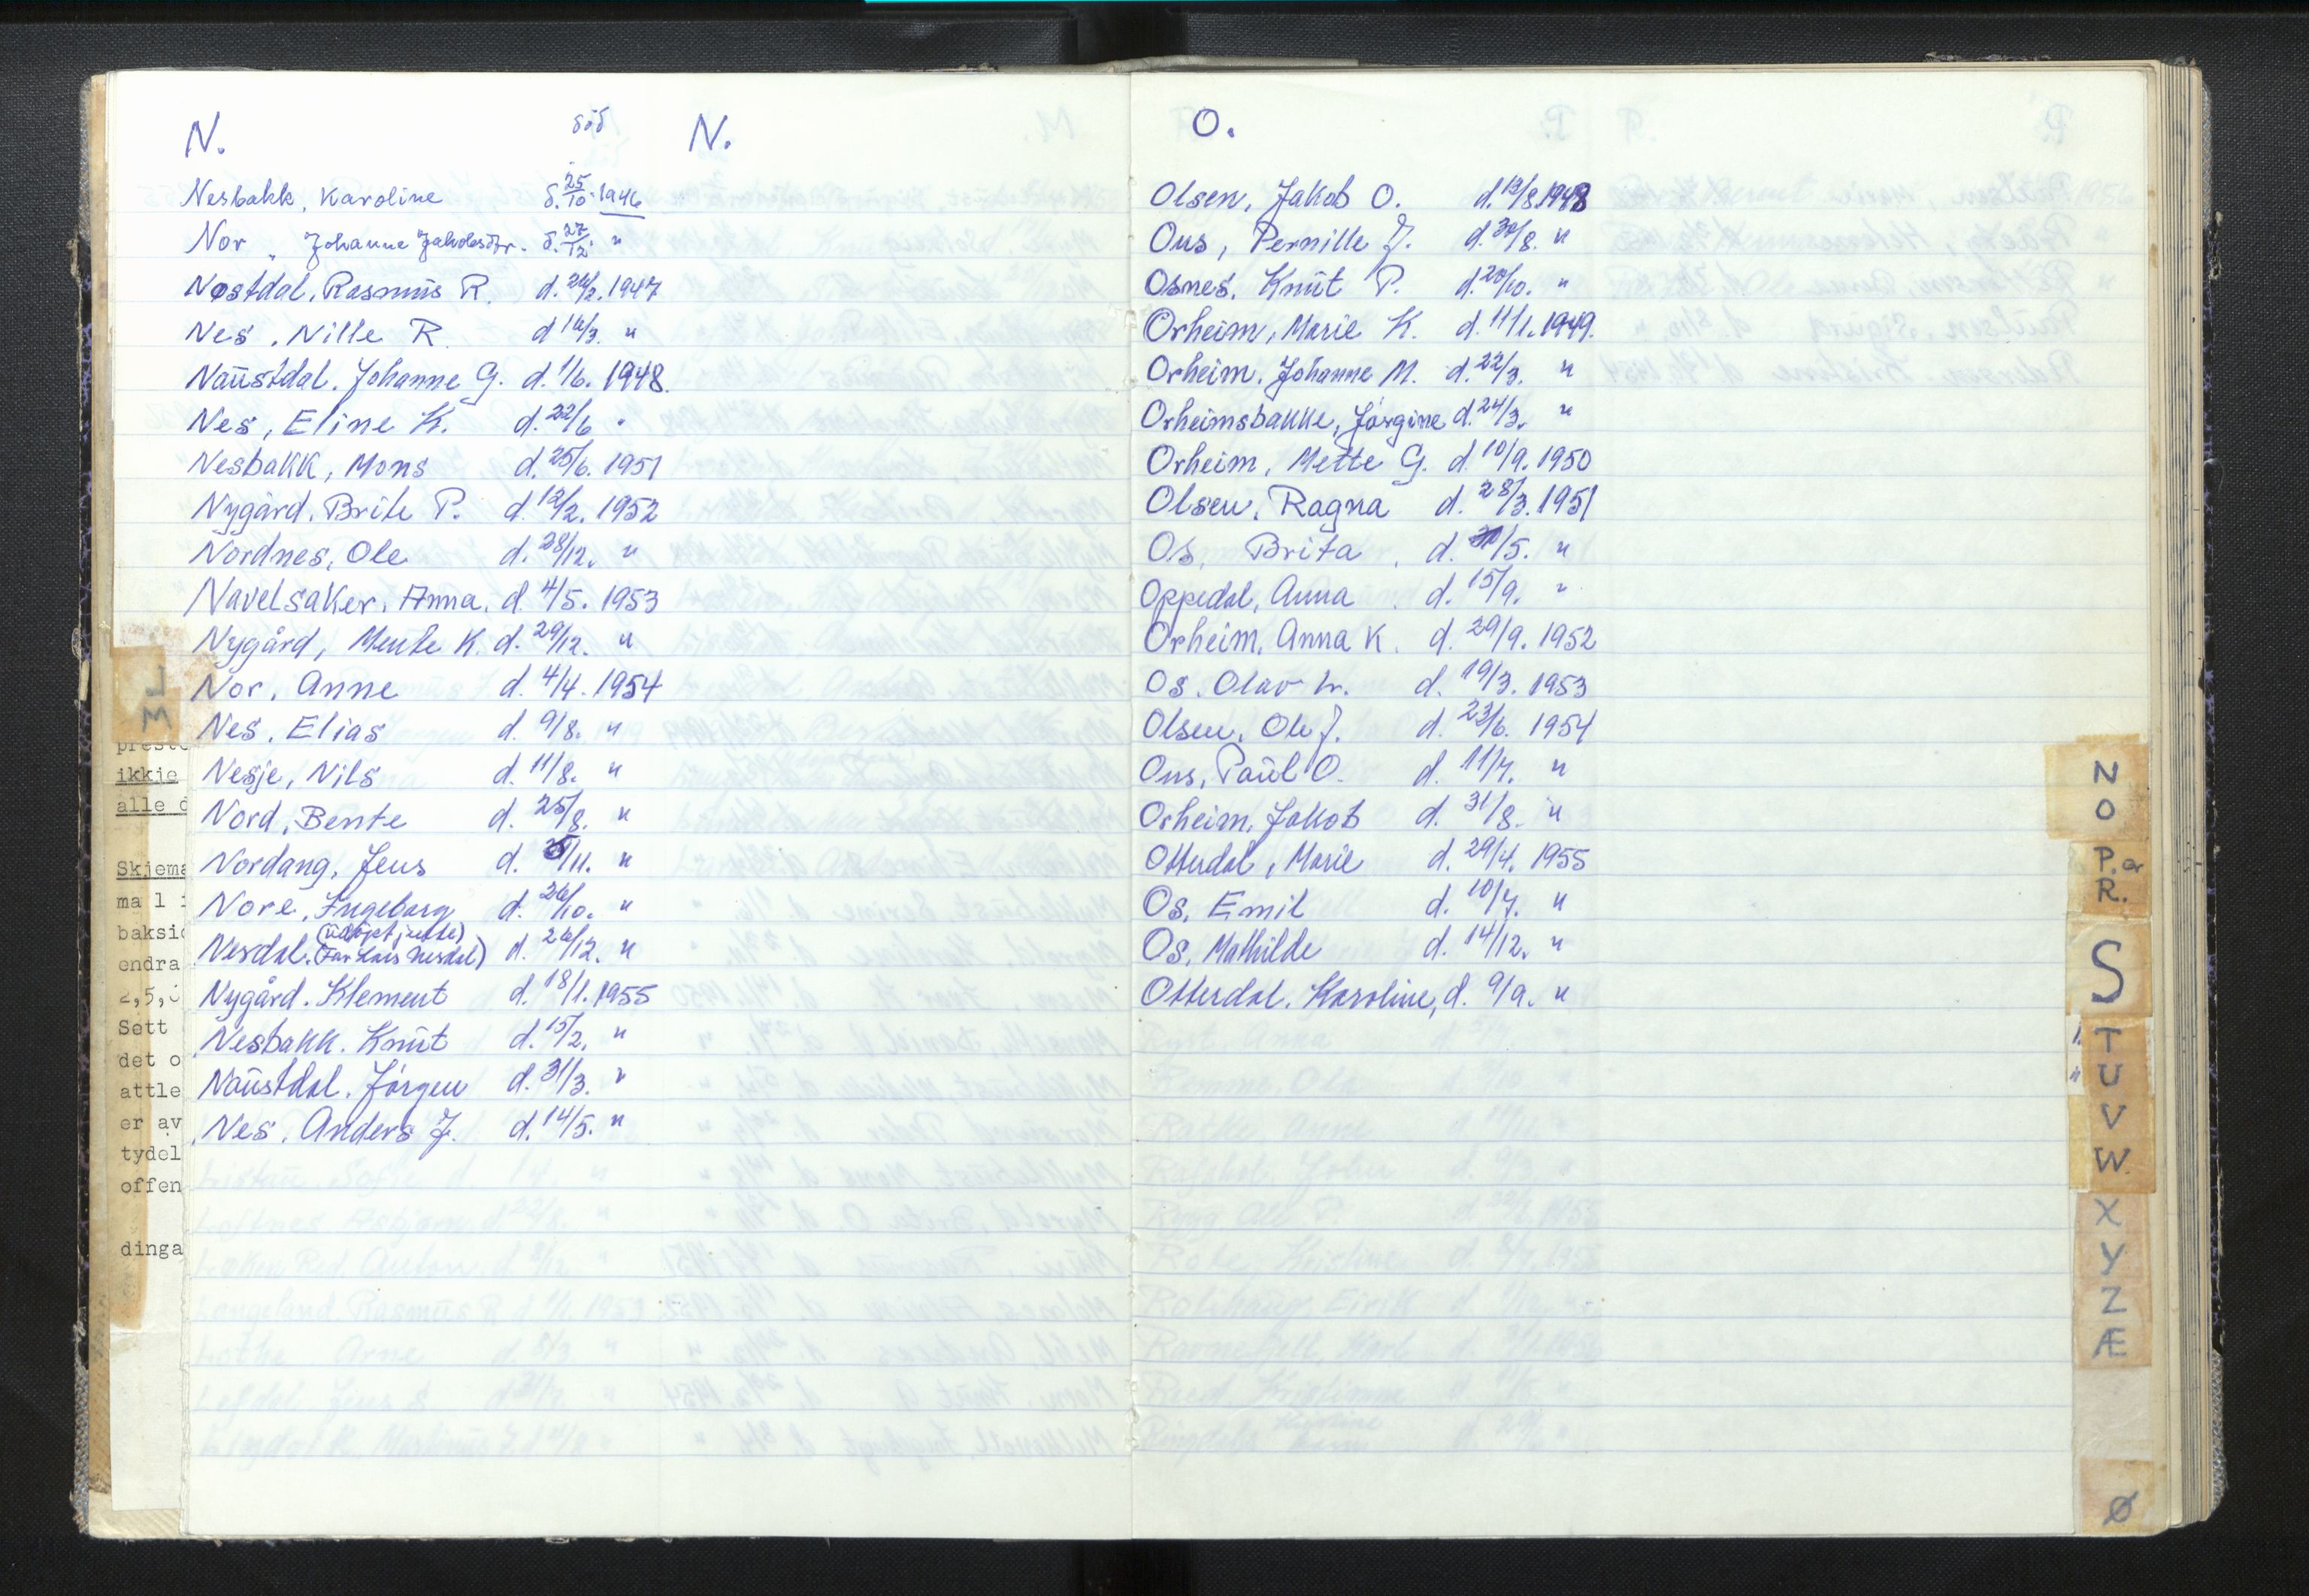 N. död N.
Nesbakk, Karoline d. 25/10. 1946
Nor „ Johanne Jakobsdtr. d. 27/12. "
Nøstdal, Rasmus R. d. 26/2. 1947
Nes, Nille R. d 16/3. "
Naustdal, Johanne G. d. 1/6. 1948.
Nes, Eline K. d. 22/6 "
Nesbakk, Mons d. 25/6. 1951
Nygård, Brite P. d. 12/2. 1952
Nordnes, Ole d. 28/12. "
Navelsaker, Anna, d. 4/5. 1953
Nygård, Mente K. d. 29/12. "
Nor, Anne d. 4/4. 1954
Nes, Elias d. 9/8. "
Nesje, Nils d. 11/8. "
Nord, Bente d. 25/8. "
Nordang, Jens d. /11. "
Nore, Ingeborg d. 26/10. "
(udøpt jente)
Nesdal. (Far Lars Nesdal) d. 26/12. "
Nygård. Klement d. 18/1. 1955
Nesbakk. Knut d. 15/2. "
Naustdal. Jörgen d. 31/3. "
Nes, Anders J. d. 14/5. "
J
M
ikkje
alle d
Skjema
ma l i
baksid
endra
2,5,
Sett
det o
attle
er av
tydel
offen
dinga
O.
Olsen, Jakob O. d. 13/8 1948
Ous, Pernille J. d. 30/8. "
Osnes, Knut P. d. 20/10. "
Orheim, Marie K. d. 11/1. 1949.
Orheim, Johanne M. d. 22/3. "
Orheimsbakke, Jörgine d. 24/3. "
Orheim, Mette G. d. 10/9. 1950
Olsen, Ragna d. 28/3. 1951
Os, Brita, d. /5. "
Oppedal, Anna d. 15/9. "
Orheim, Anna K. d. 29/9. 1952
Os, Olav Kr. d. 19/3. 1953
Olsen, Ole J. d. 23/6. 1954
Ous, Paul O. d. 11/7. "
Orheim, Jakob d. 31/8. "
Otterdal, Marie d. 29/4. 1955
Os, Emil d. 10/7. "
Os, Mathilde d. 14/12. "
Otterdal, Karoline, d. 9/9. "
N
O
P. Q
R.
S
T
U
V
W.
X
Y
Z
Æ
Ø